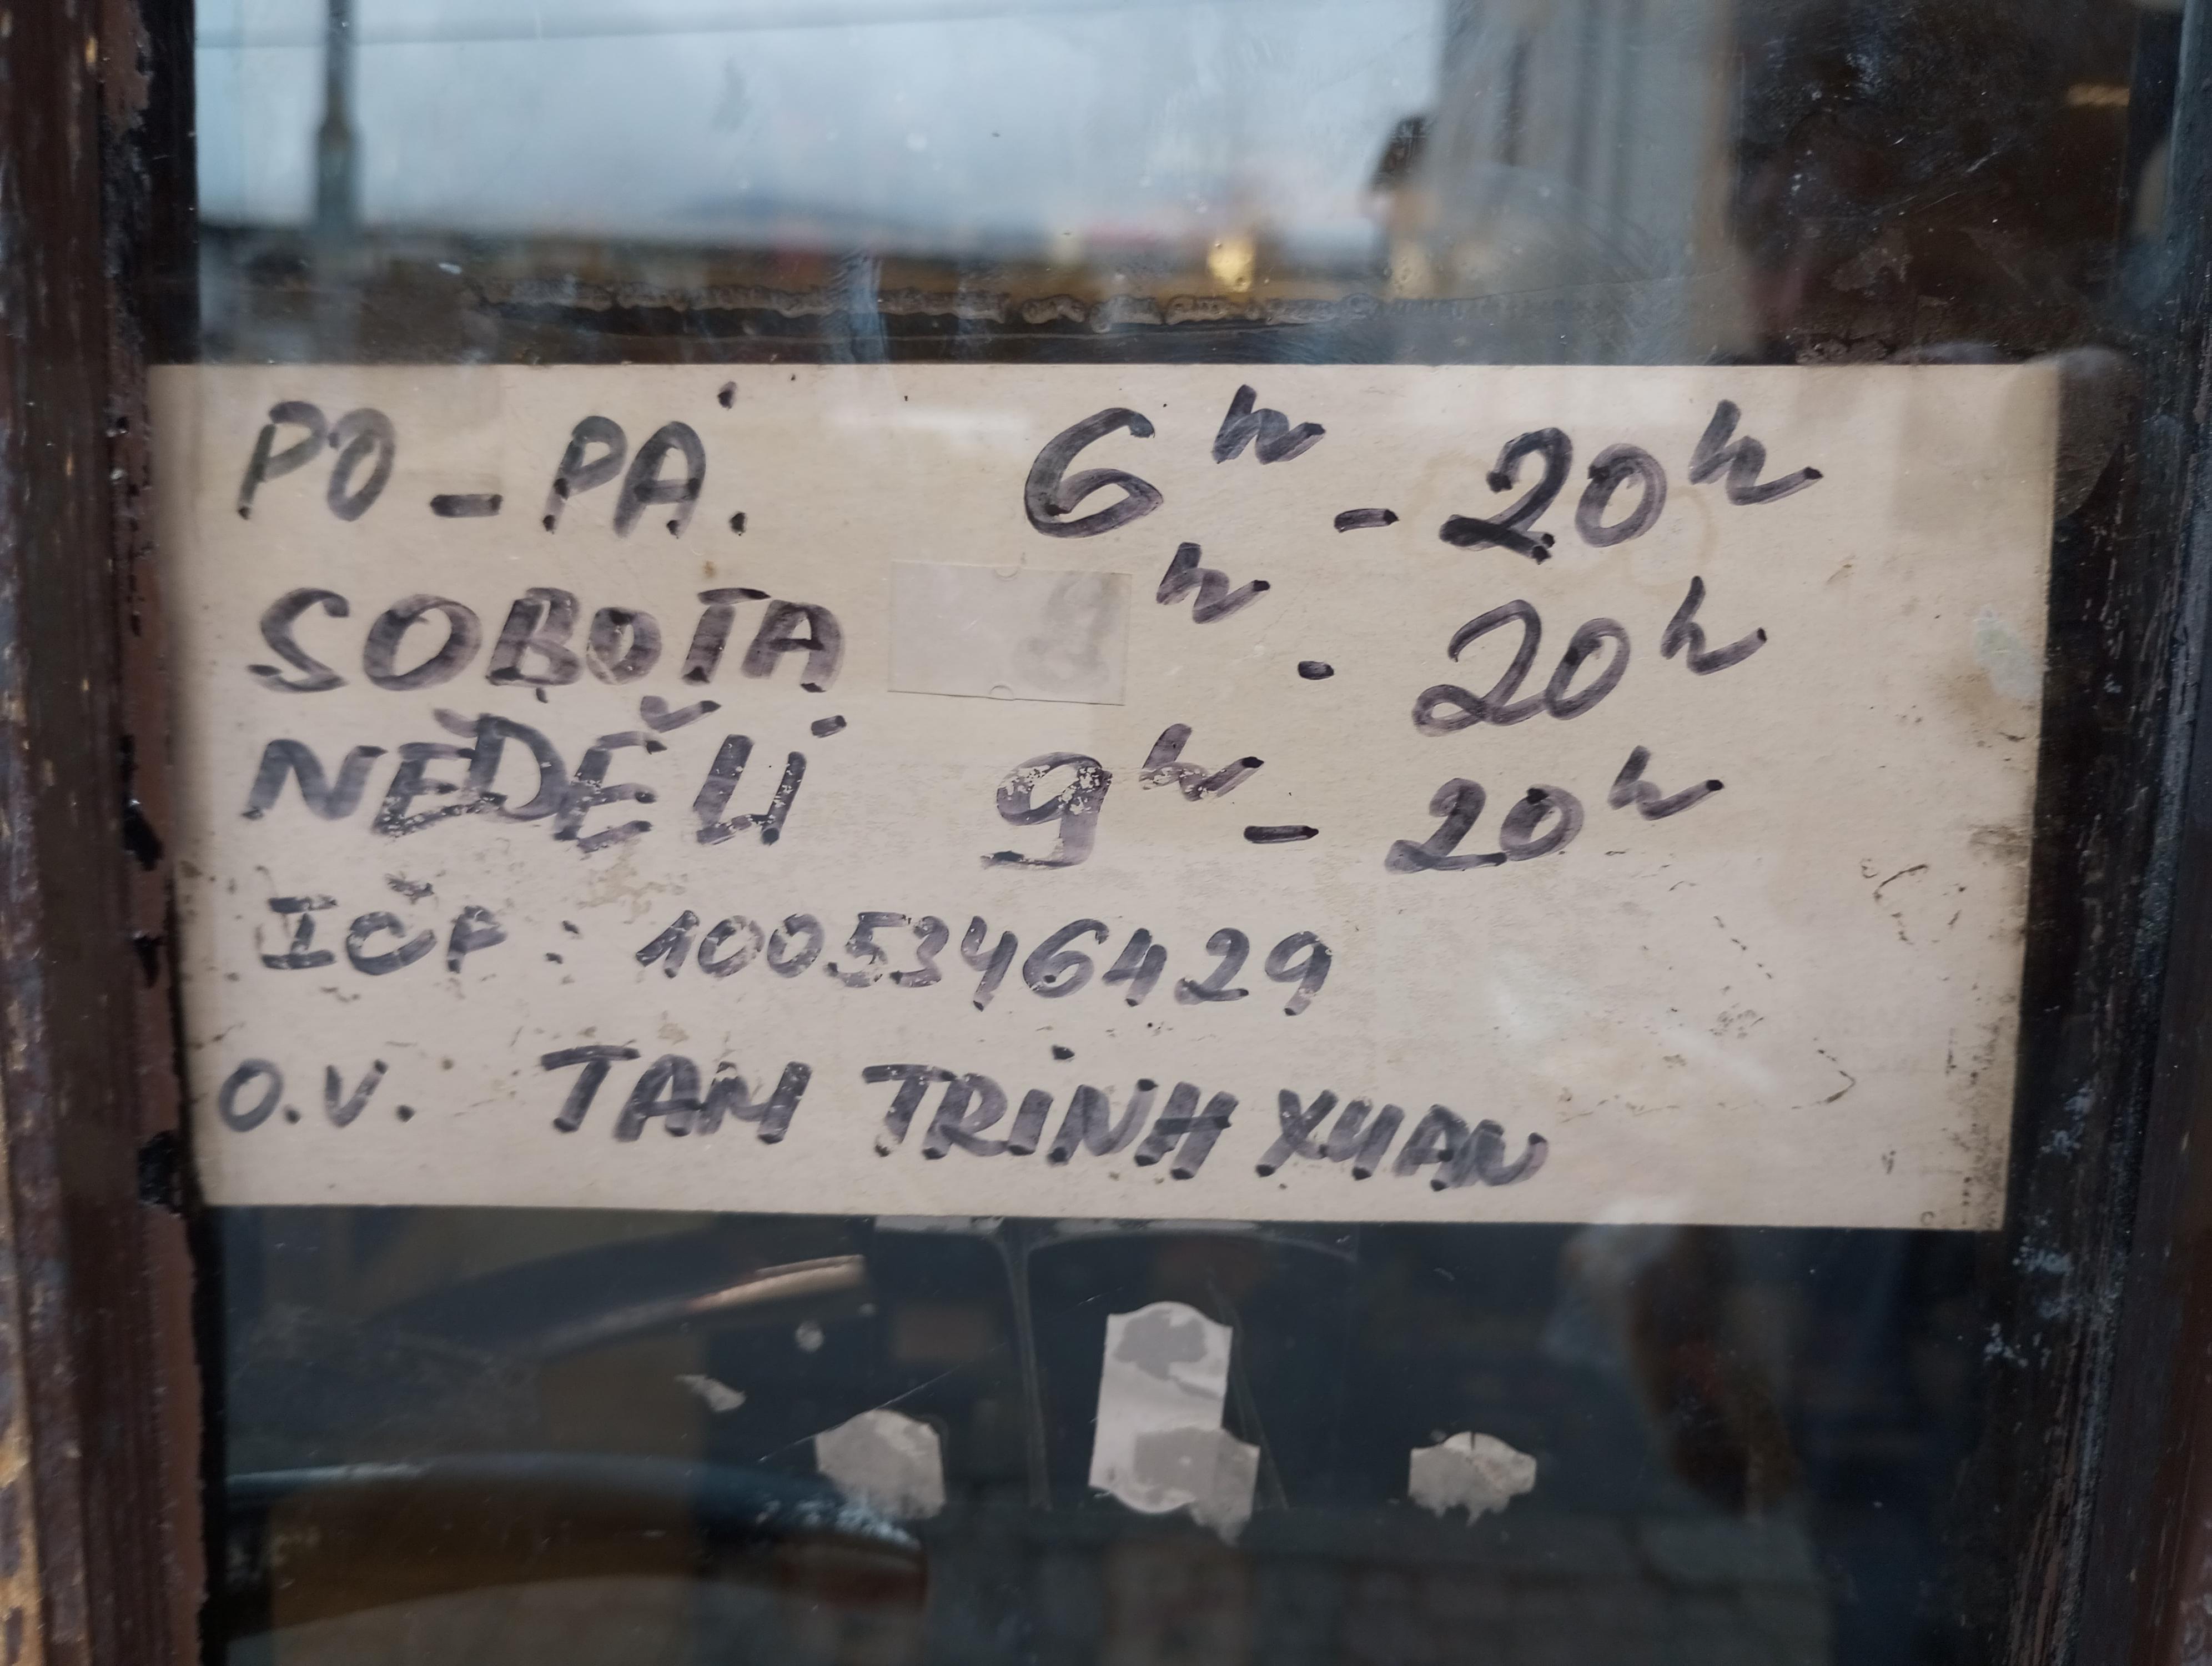 PO - PÁ. 6h - 20h
SOBOTA h - 20h
NEDĚLÍ 9h - 20h
IČP: 1005346429
O.V. TAM TRINH XUAN